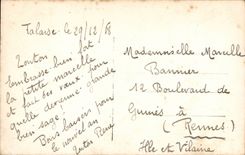 Falaise le 29/12/
Tonton
embrasse bien fort
la petite marcelle
et fait des vœux pour
qu'elle devienne grande
bien sage.
Bons baisers pour
le nouvel an
Mademoiselle Marcelle
12 Boulevard de
à
(Rennes)
Ille et Vilaine